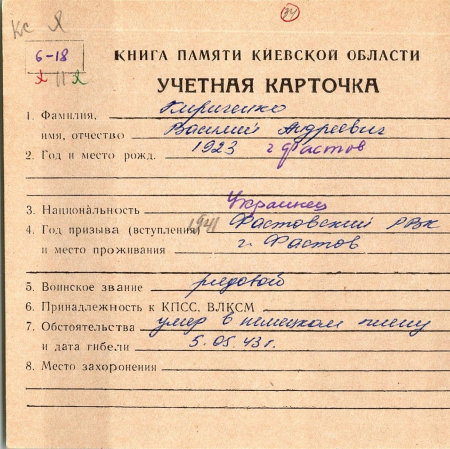 КС Я
14
6-18
Я II Я
КНИГА ПАМЯТИ КИЕВСКОЙ ОБЛАСТИ
УЧЕТНАЯ КАРТОЧКА
1. Фамилия, Кириченко
имя, отчество Василий Андреевич
2. Год и место рожд. 1923 г Фастов
3. Национальность Украинец
4. Год призыва (вступления) 1941 Фастовский РВК
и место проживания г. Фастов
5. Воинское звание рядовой
6. Принадлежность к КПСС, ВЛКСМ
7. Обстоятельства умер в немецком плену
и дата гибели 5.05.43г.
8. Место захоронения